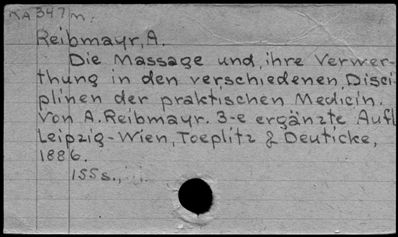 KA347m.
Reibmayr, A.
Die Massage und ihre Verwer-
thung in den verschiedenen Disci-
plinen der praktischen Medicin.
Von A. Reibmayr. 3-e ergänzte Aufl
Leipzig-Wien, Toeplitz & Deuticke,
1886.
155 s.,